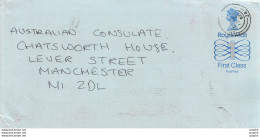 AUSTRALIAN CONSULATE
CHATSWORTH HOUSE,
LEVER STREET
MANCHESTER
M1 2DL
Royal Mail
First Class